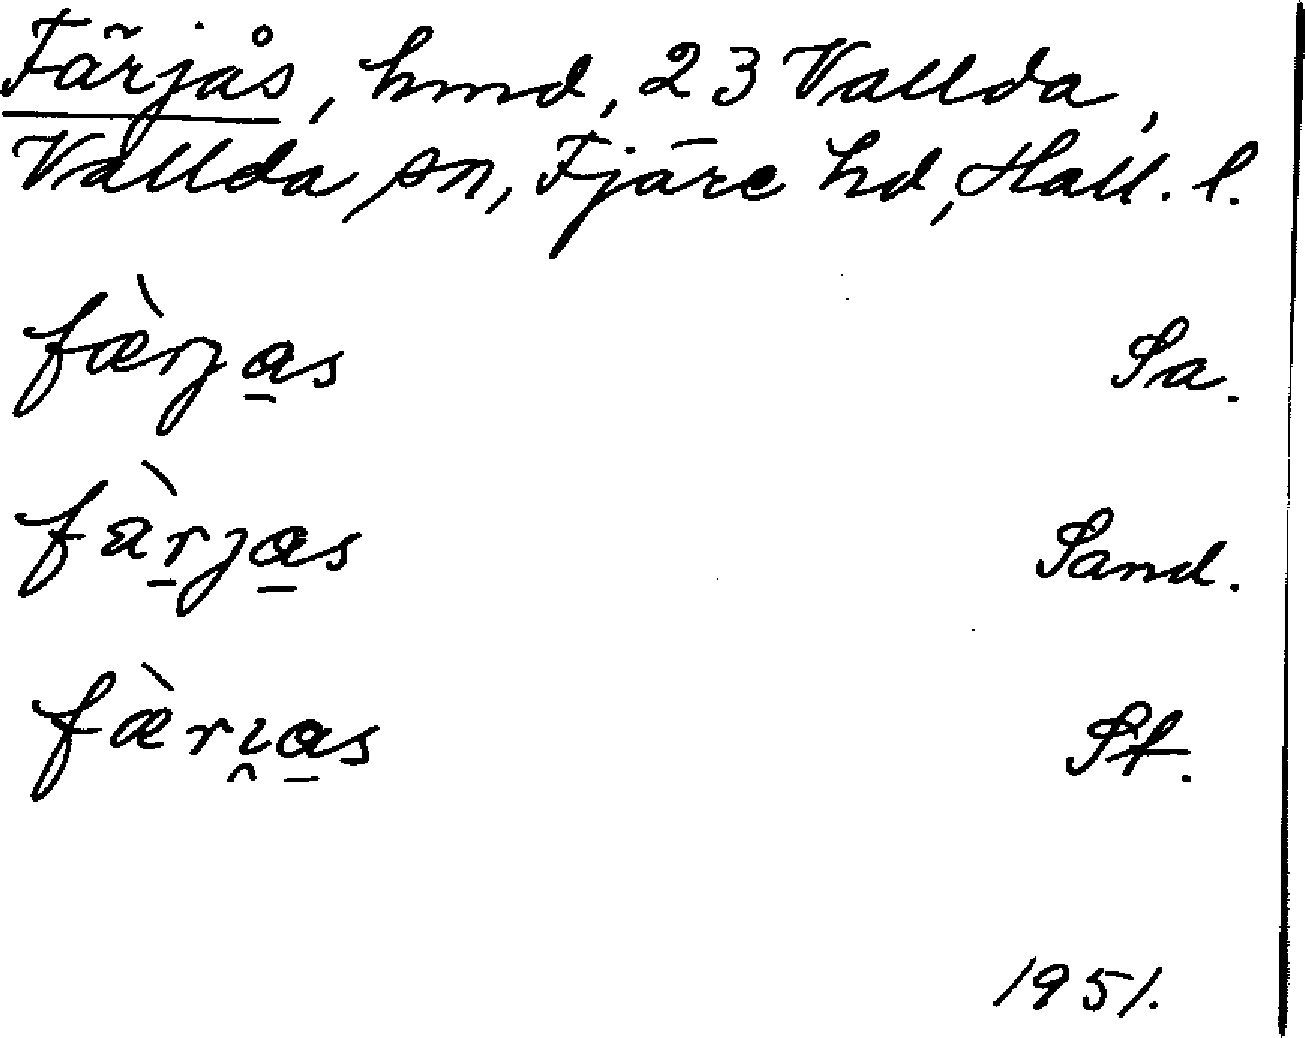 Färjås, hmd, 23 Vallda,
Vallda sn, Fjäre hd, Hall. l.
fæ̀rja̲s Sa.
fàr̲ja̲s Sand.
fæ̀rı̯a̲s St.
1951.